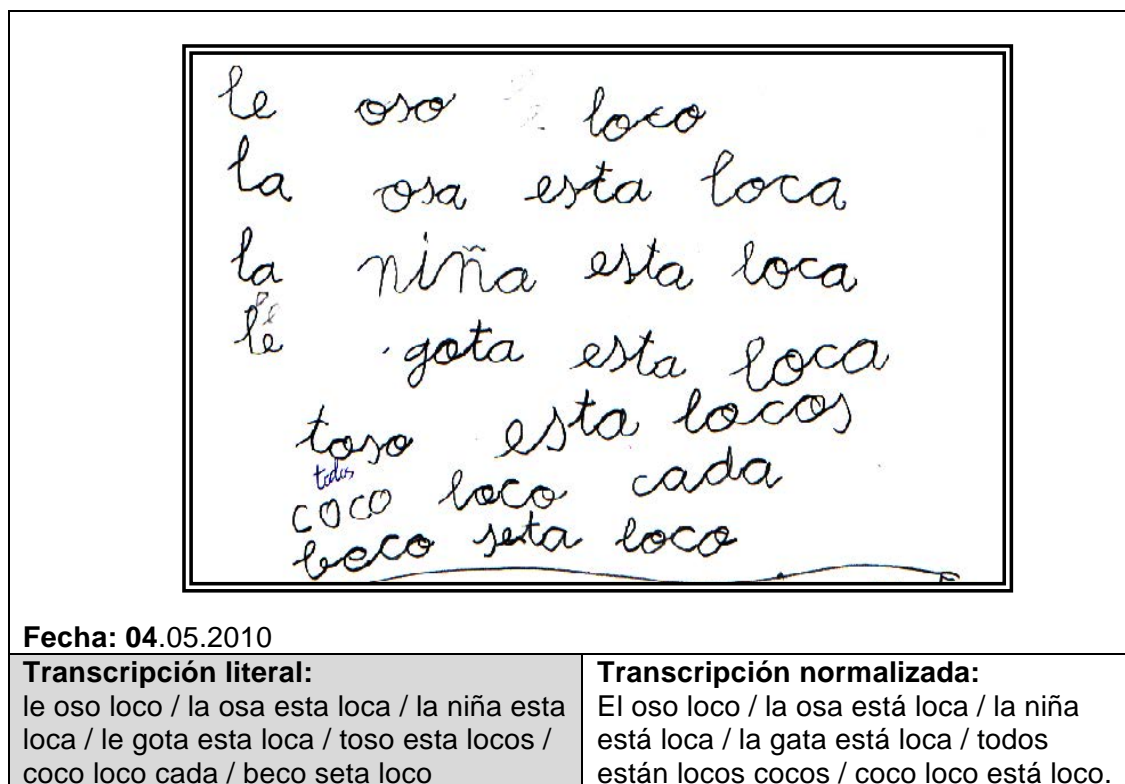 le oso loco
la osa esta loca
la niña esta loca
le gota esta loca
toso esta locos
todos
coco loco cada
beco seta loco
Fecha: 04.05.2010
Transcripción literal:
le oso loco / la osa esta loca / la niña esta
loca / le gota esta loca / toso esta locos /
coco loco cada / beco seta loco
Transcripción normalizada:
El oso loco / la osa está loca / la niña
está loca / la gata está loca / todos
están locos cocos / coco loco está loco.